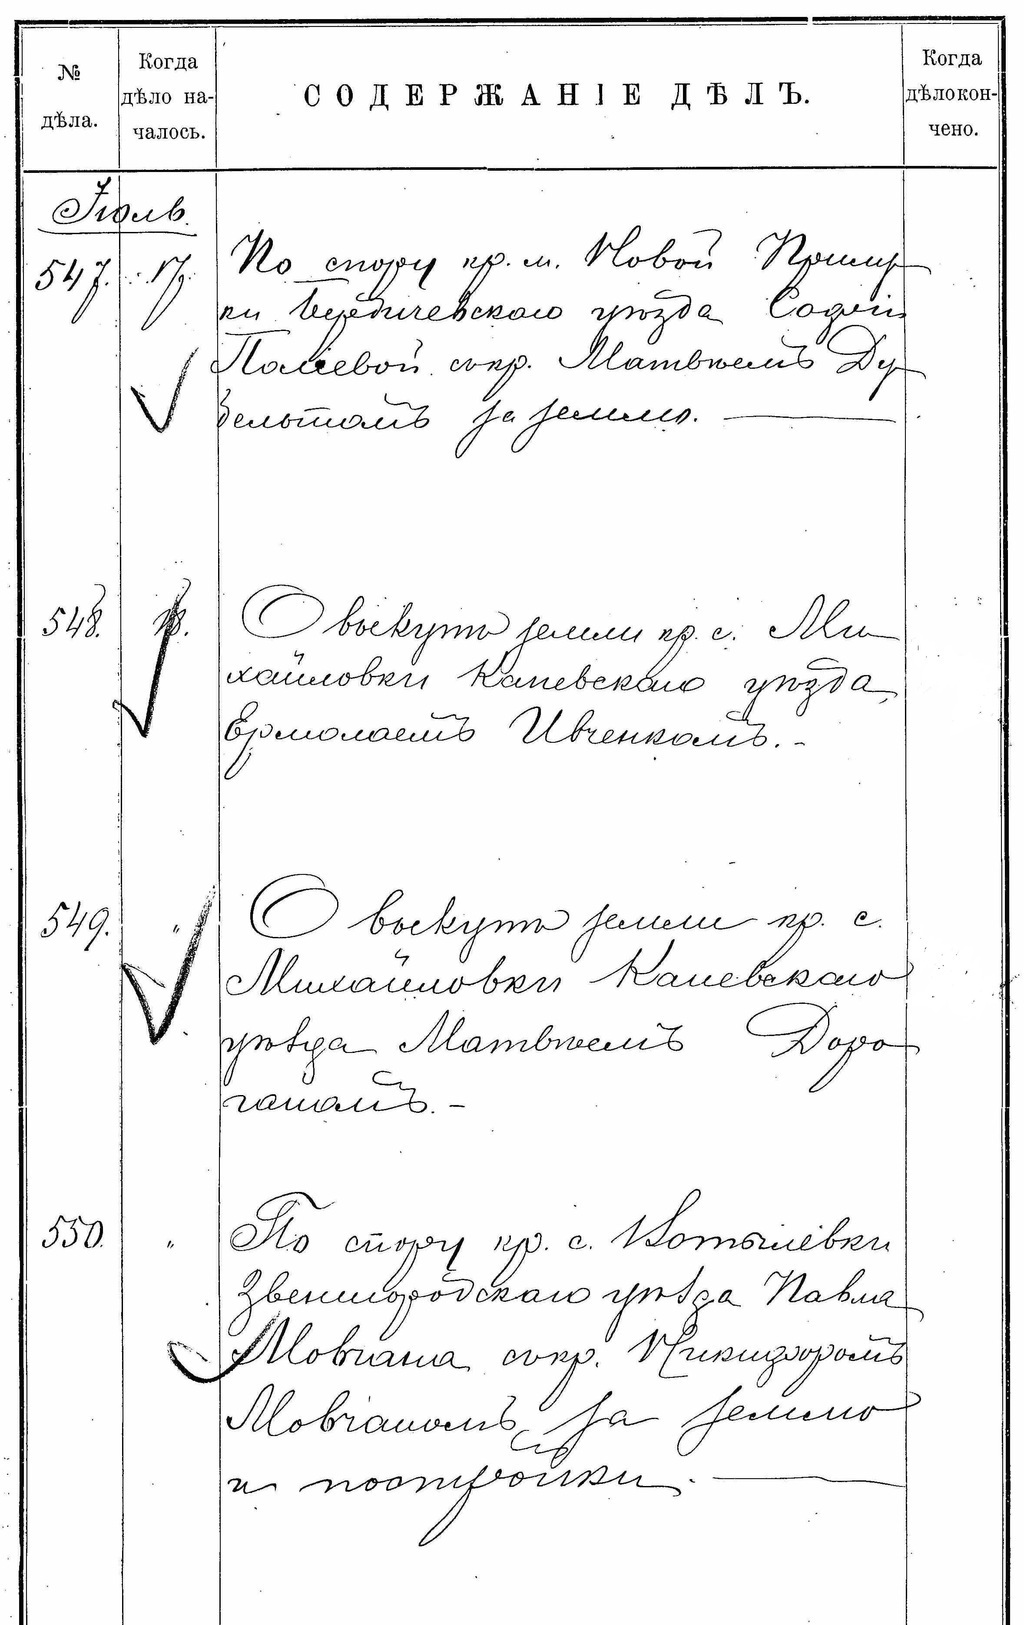 №
дѣла.
Когда
дѣло на-
чалось.
СОДЕРЖАНІЕ ДѢЛЪ.
Когда
дѣло кон-
чено.
Іюль.
547. 17.
По спору кр. м. Новой Прилу
ки Бердичевскаго уѣзда Софіи
Полевой съ кр. Матвѣемъ Ду
бельтомъ за землю.
548. 18.
О выкупѣ земли кр. с. Ми
хайловки Каневскаго уѣзда
Ермолаемъ Ивченкомъ. -
549. "
О выкупѣ земли кр. с.
Михайловки Каневскаго
уѣзда Матвѣемъ Доро
ганомъ. -
550. "
По спору кр. с. Вотылевки
Звенигородскаго уѣзда Павла
Мовчана съ кр. Никифоромъ
Мовчаномъ за землю
и постройки.